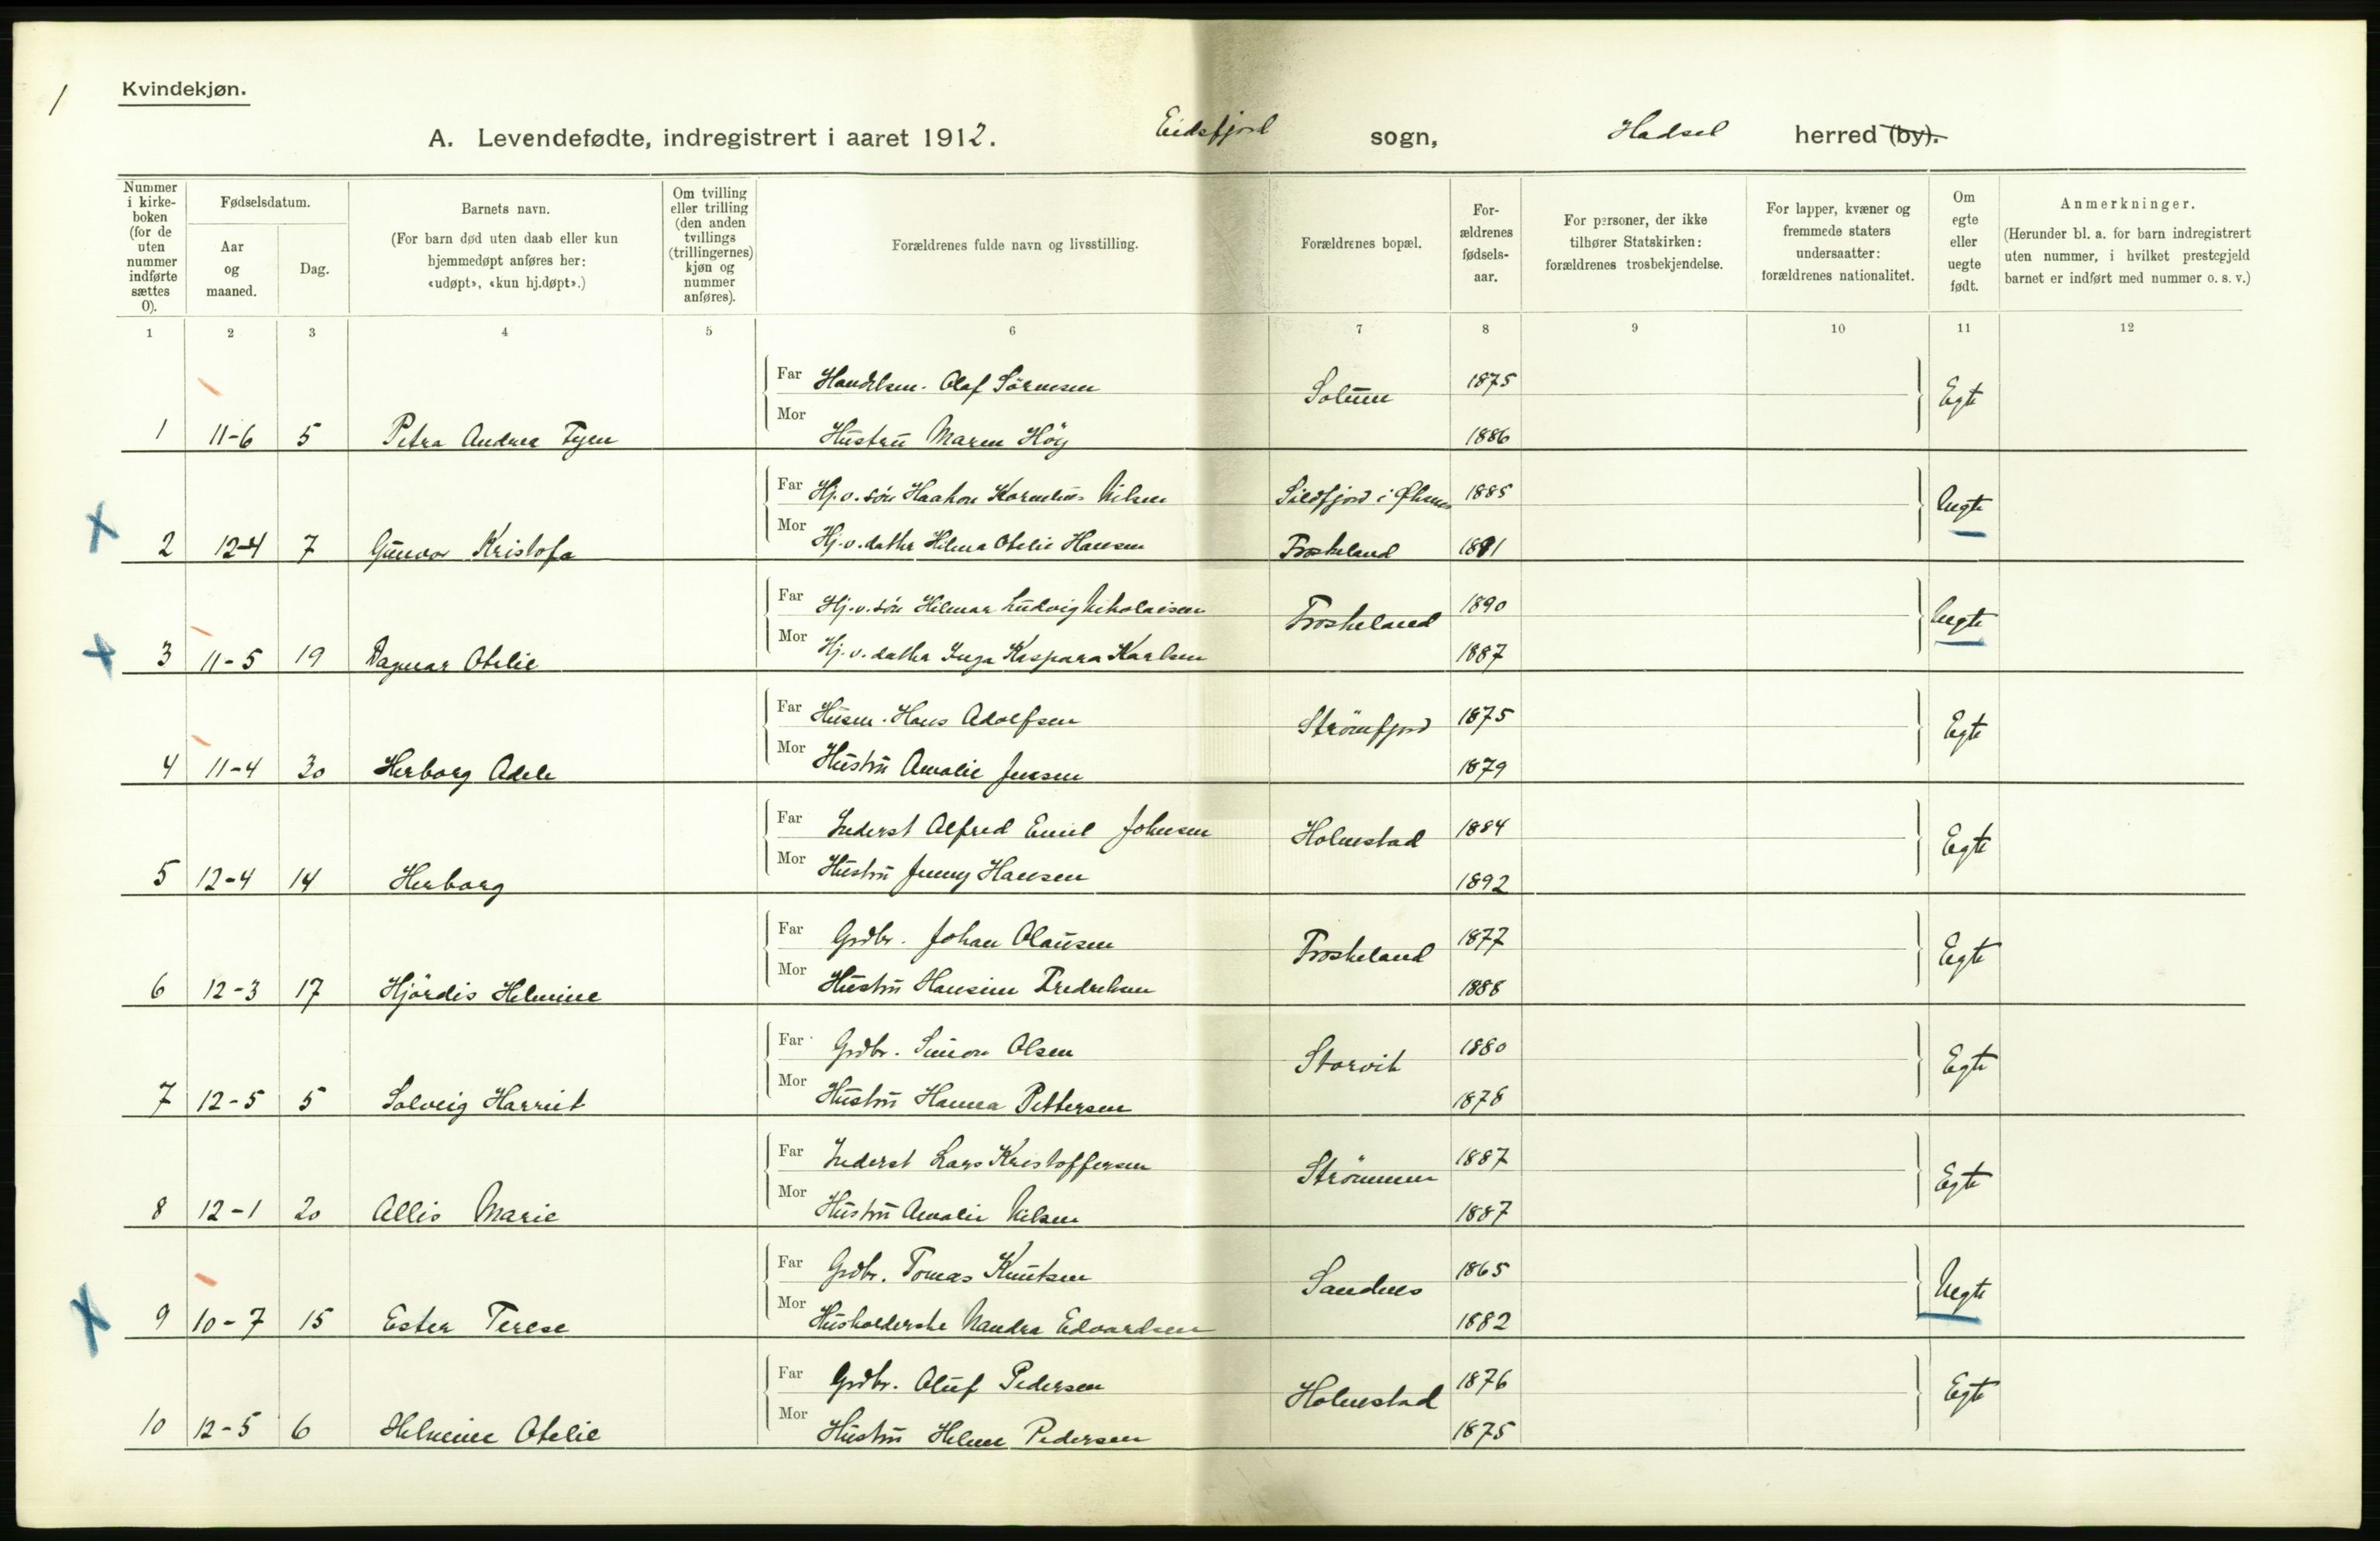 1
Kvindekjøn.
A. Levendefødte, indregistrert i aaret 1912. Eidsfjord sogn, Hadsel herred (by).
Nummer i kirke-boken (for de uten nummer indførte sættes 0).
Fødselsdatum.
Aar og maaned.
Dag.
Barnets navn.
(For barn død uten daab eller kun hjemmedøpt anføres her: «udøpt», «kun hj.døpt».)
Om tvilling eller trilling (den anden tvillings (trillingernes) kjøn og nummer anføres).
Forældrenes fulde navn og livsstilling.
Forældrenes bopæl.
For-ældrenes fødsels-aar.
For personer, der ikke tilhører Statskirken: forældrenes trosbekjendelse.
For lapper, kvæner og fremmede staters undersaatter: forældrenes nationalitet.
Om egte eller uegte født.
Anmerkninger.
(Herunder bl. a. for barn indregistrert uten nummer, i hvilket prestegjeld barnet er indført med nummer o. s. v.)
1 2 3 4 5 6 7 8 9 10 11 12
Far Handelsm. Olaf Sörensen Solum 1875 Egte
1 11-6 5 Petra Andrea Mor Hustru Maren Höy 1886
Far Hj.v. sön Haakon Kornelius Nilsen Sildfjord i Øksnes 1885 Uegte
2 12-4 7 Gunvor Kristofa Mor Hj.v. datter Hilma Otelie Hansen Froskeland 1891
Far Hj.v. sön Hilmar Ludvig Nikolaisen Froskeland 1890 Uegte
3 11-5 19 Dagmar Otelie Mor Hj.v. datter Inga Kaspara Karlsen 1887
Far Husm. Hans Adolfsen Strömfjord 1875 Egte
4 11-4 30 Herborg Adele Mor Hustru Amalie Jensen 1879
Far Inderst Alfred Emil Johnsen Holmstad 1884 Egte
5 12-4 14 Herborg Mor Hustru Jenny Hansen 1892
Far Grdbr. Johan Olausen Froskeland 1877 Egte
6 12-3 17 Hjördis Helmine Mor Hustru Hansine Fredriksen 1888
Far Grdbr. Simon Olsen Storvik 1880 Egte
7 12-5 5 Solveig Harriet Mor Hustru Hanna Pettersen 1878
Far Inderst Lars Kristoffersen Strömmen 1887 Egte
8 12-1 20 Allis Marie Mor Hustru Amalie Nilsen 1887
Far Grdbr. Tomas Knutsen Sandnes 1865 Uegte
9 10-7 15 Ester Terese Mor Husholderske Nandra Edvardsen 1882
Far Grdbr. Oluf Pedersen Holmstad 1876 Egte
10 12-5 6 Helmine Otelie Mor Hustru Helene Pedersen 1875